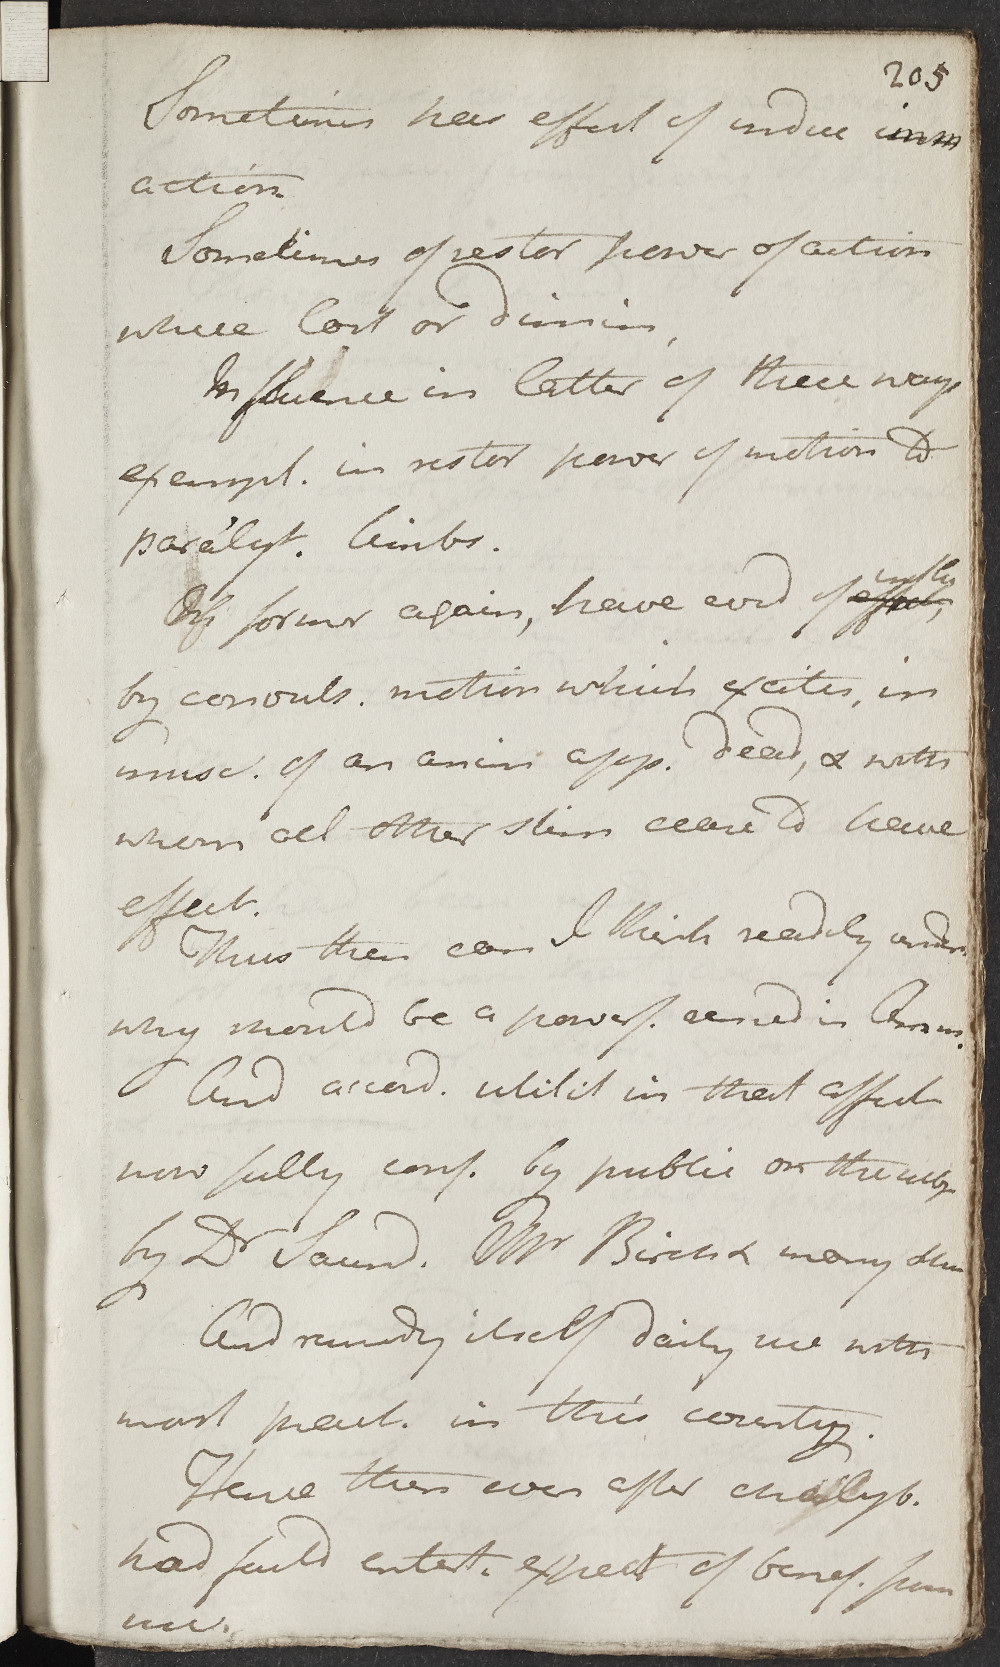 205
Sometimes has effect of induc imm
action
Sometimes of restor power of action
where lost or dimin,
Influence in latter of these ways
exempl. in restor power of motion to
paralyt. limbs.
Of former again, have evid of effects, influ
by convuls. motion which excites, in
musc. of an anim app. dead, & with
whom all other stim cease to have
effect.
Thus then can I think readily unders
why should be a powerf. remed in Amen.
And accord. utilit in that affect
now fully conf. by public on the subj
by Dr Saund. Mr Birch & many other
And remedy itself daily use with
most pract. in this country.
Hence then even after chalyb.
had fail'd entert. expect of benef. from
use.